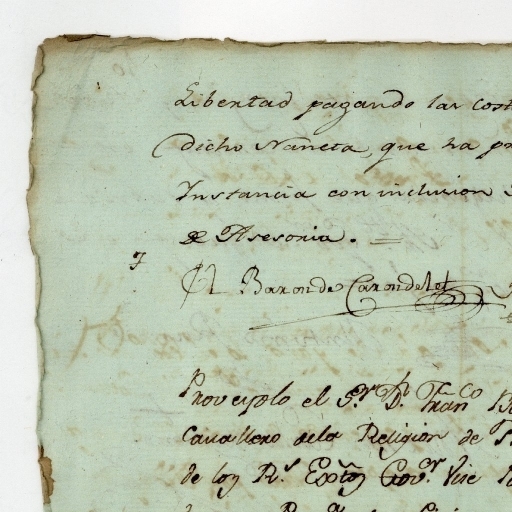 Libertad pagando las cost
dicho Naneta, que ha pr
Instancia con inclusion
de Asesoria. =
El Baron de Carondelet
Proveyolo el S.r D.n Fran.co
Cavallero dela Religion de
de los R.s Exto.s Gov.or Vice